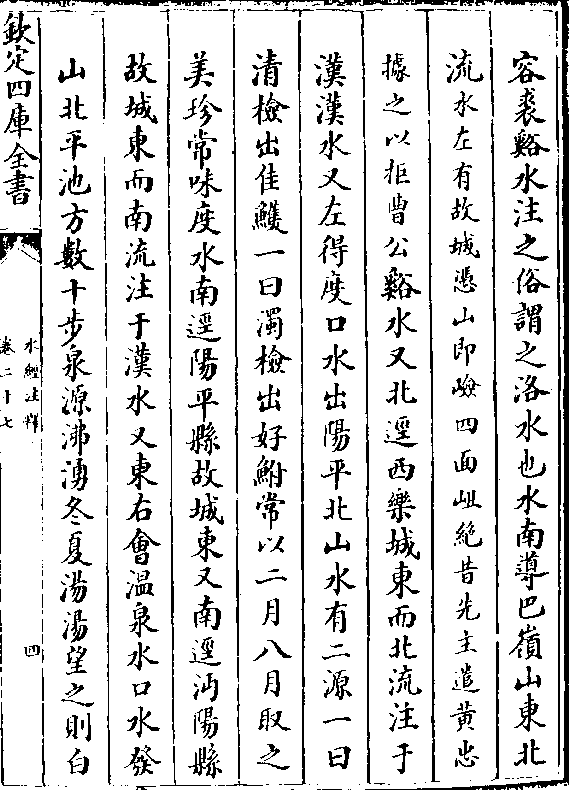 容裘谿水注之俗謂之洛水也水南導巴嶺山東北
流水左有故城憑山即嶮四面岨絕昔先主遣黃忠
據之以拒曹公谿水又北逕西樂城東而北流注于
漢漢水又左得度口水出陽平北山水有二源一曰
清檢出佳鱯一曰濁檢出好鮒常以二月八月取之
美珍常味度水南逕陽平縣故城東又南逕沔陽縣
故城東而南流注于漢水又東右會温泉水口水發
山北平池方數十步泉源沸湧冬夏湯湯望之則白
欽定四庫全書
水經注釋
卷二十七
四